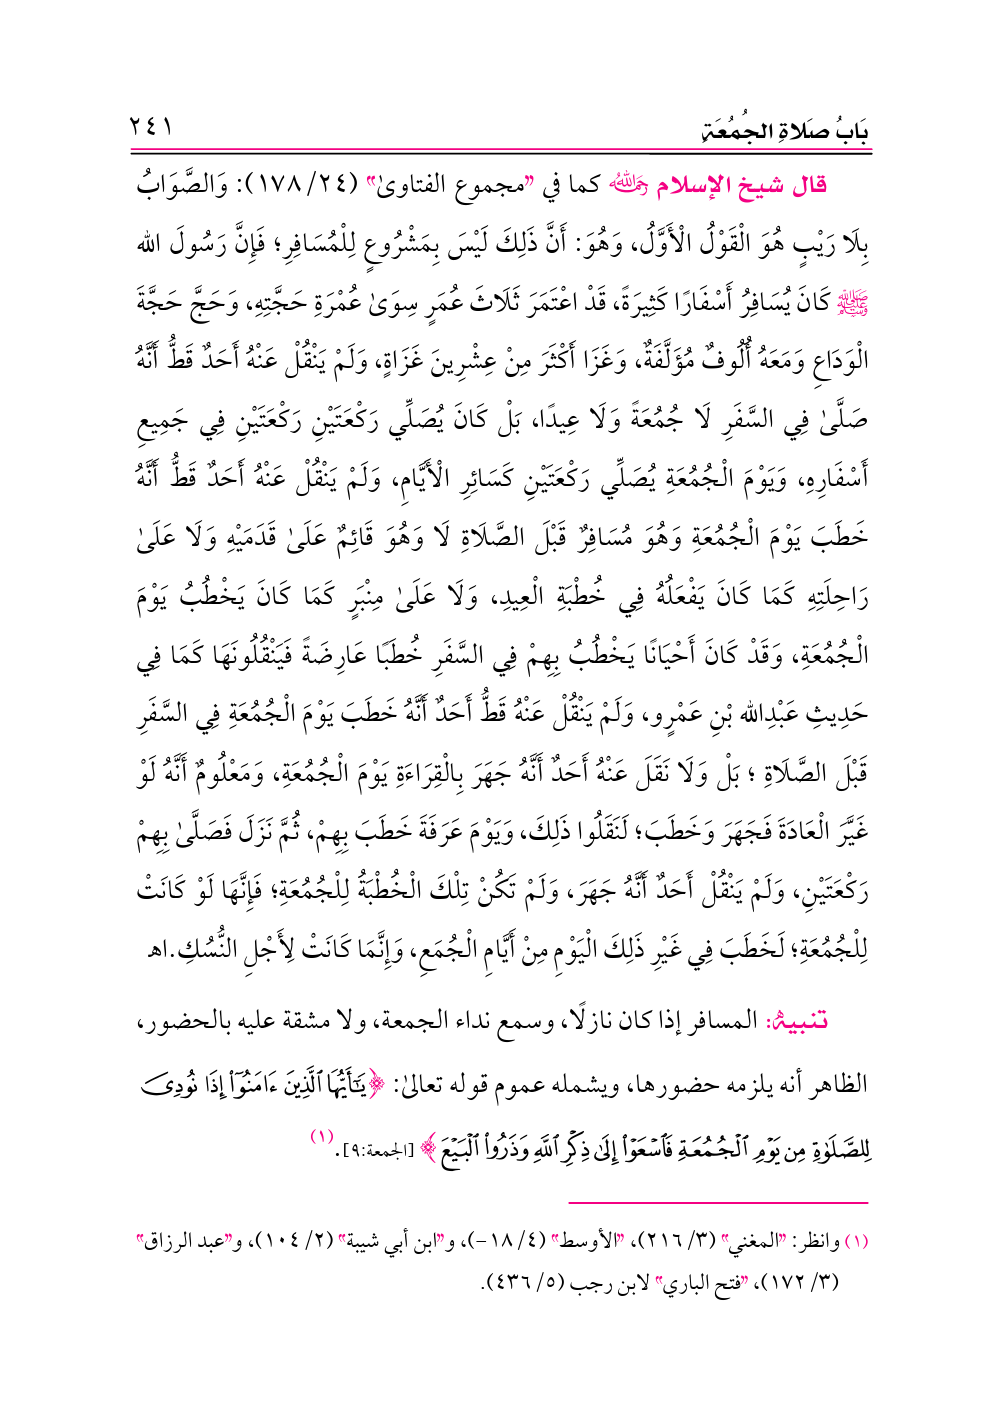 بَابُ صَلاةِ الجُمُعَةِ ٢٤١
قال شيخ الإسلام رحمه الله كما في "مجموع الفتاوىٰ" (٢٤/ ١٧٨): وَالصَّوَابُ
بِلَا رَيْبٍ هُوَ الْقَوْلُ الْأَوَّلُ، وَهُوَ: أَنَّ ذَلِكَ لَيْسَ بِمَشْرُوعٍ لِلْمُسَافِرِ؛ فَإِنَّ رَسُولَ الله
ﷺ كَانَ يُسَافِرُ أَسْفَارًا كَثِيرَةً، قَدْ اعْتَمَرَ ثَلَاثَ عُمَرٍ سِوَىٰ عُمْرَةِ حَجَّتِهِ، وَحَجَّ حَجَّةَ
الْوَدَاعِ وَمَعَهُ أُلُوفٌ مُؤَلَّفَةٌ، وَغَزَا أَكْثَرَ مِنْ عِشْرِينَ غَزَاةٍ، وَلَمْ يَنْقُلْ عَنْهُ أَحَدٌ قَطُّ أَنَّهُ
صَلَّىٰ فِي السَّفَرِ لَا جُمُعَةً وَلَا عِيدًا، بَلْ كَانَ يُصَلِّي رَكْعَتَيْنِ رَكْعَتَيْنِ فِي جَمِيعِ
أَسْفَارِهِ، وَيَوْمَ الْجُمُعَةِ يُصَلِّي رَكْعَتَيْنِ كَسَائِرِ الْأَيَّامِ، وَلَمْ يَنْقُلْ عَنْهُ أَحَدٌ قَطُّ أَنَّهُ
خَطَبَ يَوْمَ الْجُمُعَةِ وَهُوَ مُسَافِرٌ قَبْلَ الصَّلَاةِ لَا وَهُوَ قَائِمٌ عَلَىٰ قَدَمَيْهِ وَلَا عَلَىٰ
رَاحِلَتِهِ كَمَا كَانَ يَفْعَلُهُ فِي خُطْبَةِ الْعِيدِ، وَلَا عَلَىٰ مِنْبَرٍ كَمَا كَانَ يَخْطُبُ يَوْمَ
الْجُمُعَةِ، وَقَدْ كَانَ أَحْيَانًا يَخْطُبُ بِهِمْ فِي السَّفَرِ خُطَبًا عَارِضَةً فَيَنْقُلُونَهَا كَمَا فِي
حَدِيثِ عَبْدِالله بْنِ عَمْرٍو، وَلَمْ يَنْقُلْ عَنْهُ قَطُّ أَحَدٌ أَنَّهُ خَطَبَ يَوْمَ الْجُمُعَةِ فِي السَّفَرِ
قَبْلَ الصَّلَاةِ ؛ بَلْ وَلَا نَقَلَ عَنْهُ أَحَدٌ أَنَّهُ جَهَرَ بِالْقِرَاءَةِ يَوْمَ الْجُمُعَةِ، وَمَعْلُومٌ أَنَّهُ لَوْ
غَيَّرَ الْعَادَةَ فَجَهَرَ وَخَطَبَ؛ لَنَقَلُوا ذَلِكَ، وَيَوْمَ عَرَفَةَ خَطَبَ بِهِمْ، ثُمَّ نَزَلَ فَصَلَّىٰ بِهِمْ
رَكْعَتَيْنِ، وَلَمْ يَنْقُلْ أَحَدٌ أَنَّهُ جَهَرَ، وَلَمْ تَكُنْ تِلْكَ الْخُطْبَةُ لِلْجُمُعَةِ؛ فَإِنَّهَا لَوْ كَانَتْ
لِلْجُمُعَةِ؛ لَخَطَبَ فِي غَيْرِ ذَلِكَ الْيَوْمِ مِنْ أَيَّامِ الْجُمَعِ، وَإِنَّمَا كَانَتْ لِأَجْلِ النُّسُكِ.اهـ
تنبيهٌ: المسافر إذا كان نازلًا، وسمع نداء الجمعة، ولا مشقة عليه بالحضور،
الظاهر أنه يلزمه حضورها، ويشمله عموم قوله تعالىٰ: ﴿يَٰٓأَيُّهَا ٱلَّذِينَ ءَامَنُوٓا۟ إِذَا نُودِىَ
لِلصَّلَوٰةِ مِن يَوْمِ ٱلْجُمُعَةِ فَٱسْعَوْا۟ إِلَىٰ ذِكْرِ ٱللَّهِ وَذَرُوا۟ ٱلْبَيْعَ﴾ [الجمعة:٩].(١)
(١) وانظر: "المغني" (٣/ ٢١٦)، "الأوسط" (٤/ ١٨-)، و"ابن أبي شيبة" (٢/ ١٠٤)، و"عبد الرزاق"
(٣/ ١٧٢)، "فتح الباري" لابن رجب (٥/ ٤٣٦).